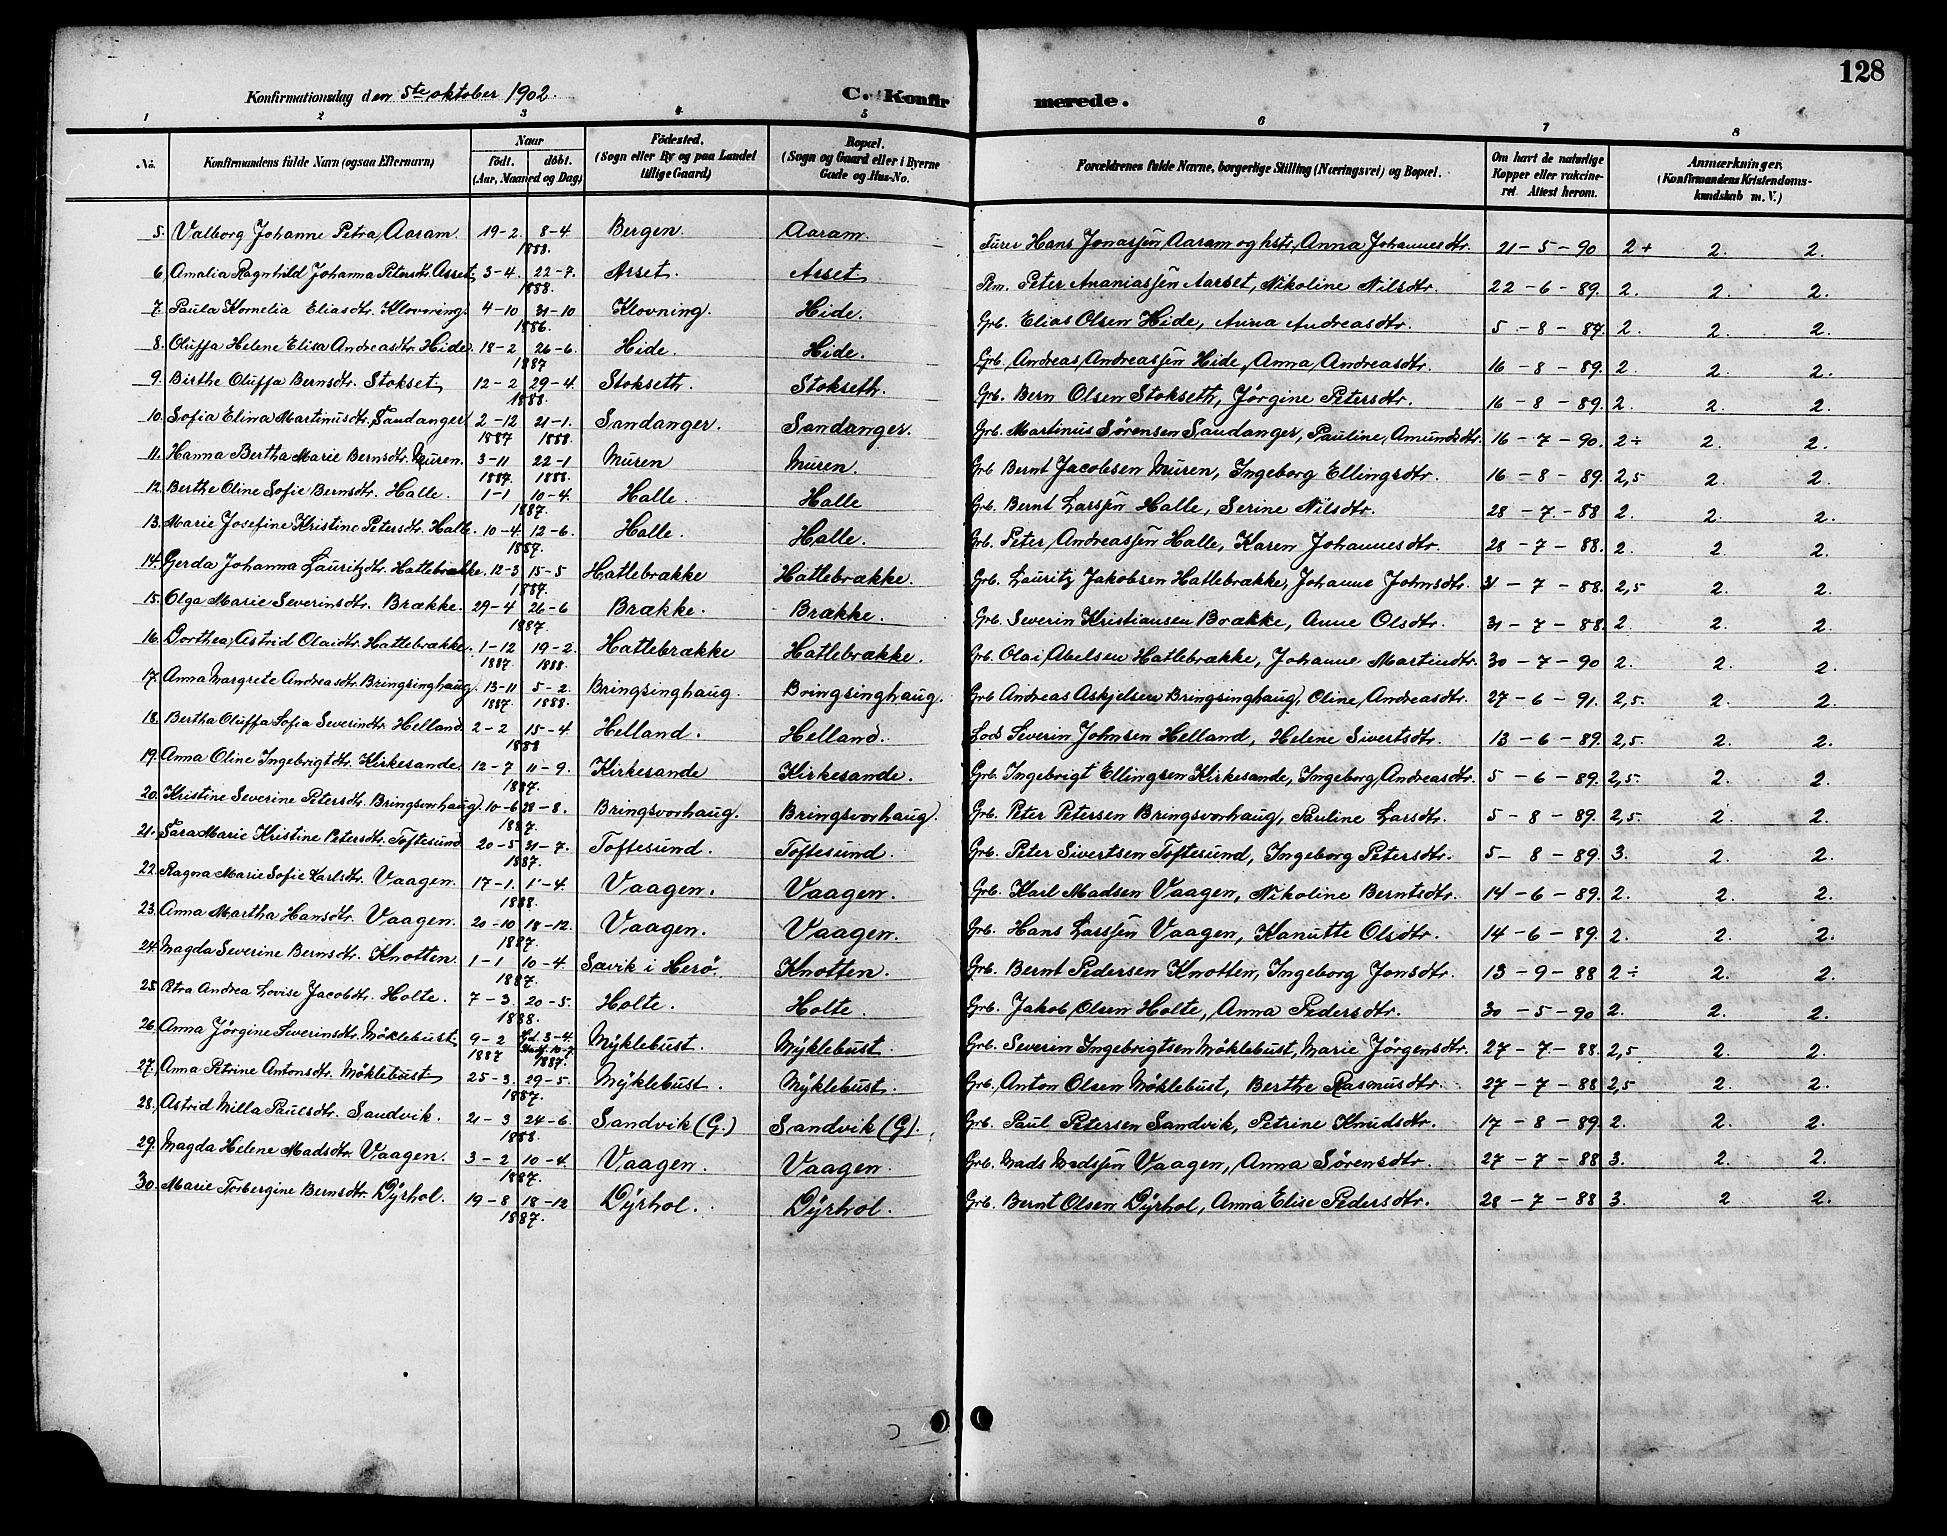 128
Konfirmationsdag den 5te oktober 1902. C. Konfirmerede.
1 2 3 4 5 6 7 8
No. Konfirmandens fulde Navn (ogsaa Efternavn) Naar født. døbt. (Aar, Maaned og Dag) Fødested. (Sogn eller By og paa Landet tillige Gaard) Bopæl. (Sogn og Gaard eller i Byerne Gade og Hus-No. Forældrenes fulde Navne, borgerlige Stilling (Næringsvei) og Bopæl. Om havt de naturlige Kopper eller vakcineret. Attest herom. Anmærkninger. (Konfirmandens Kristendomskundskab m. V.)
5. Valborg Johanne Petra Aaram 19-2. 8-4. 1888. Bergen. Aaram. Furer Hans Jonassen Aaram og hst. Anna Johannesdtr. 21-5-90 2+ 2. 2.
6. Amalia Ragnhild Johanna Petersdtr. Arset 3-4. 22-7. 1888. Arset. Arset Pm. Peter Ananiassen Aarset, Nikoline Nilsdtr. 22-6-89. 2. 2. 2.
7. Paula Kornelia Eliasdtr. Klovning 4-10 31-10 1886. Klovning. Hide. Grb. Elias Olsen Hide, Anna Andreasdtr. 5-8-87. 2. 2. 2.
8. Oluffa Helene Elisa Andreasdtr. Hide. 18-2 26-6. 1887 Hide. Hide. Grb. Andreas Andreassen Hide, Anna Andreasdtr. 16-8-89. 2. 2. 2.
9. Birthe Oluffa Bernsdtr. Stokset 12-2 29-4. 1888. Stokseth. Stokseth. Grb. Bern Olsen Stokseth, Jörgine Petersdtr. 16-8-89. 2. 2. 2.
10. Sofia Elina Martinusdtr. Sandanger 2-12 1887 21-1. 1888. Sandanger. Sandanger. Grb. Martinus Sørensen Sandanger, Pauline Amundsdtr. 16-7-90. 2÷ 2. 2.
11. Hanna Bertha Marie Bernsdtr. Muren. 3-11 1887. 22-1 1888. Muren Muren. Grb Bernt Jacobsen Muren, Ingeborg Ellingsdtr. 16-8-89. 2,5 2. 2.
12. Berthe Oline Sofie Bernsdtr. Halle. 1-1 10-4. 1887. Halle. Halle Grb. Bernt Larssen Halle, Serine Nilsdtr. 28-7-88 2. 2. 2.
13. Marie Josefine Kristine Petersdtr. Halle. 10-4. 12-6. 1887. Halle. Halle. Grb. Peter Andreassen Halle, Karen Johannesdtr. 28-7-88. 2. 2. 2.
14. Gerda Johanna Lauritzdtr. Hatlebrække. 12-3 15-5 1887. Hatlebrække Hatlebrække. Grb. Lauritz Jakobsen Hatlebrække, Johanne Johnsdtr. 31-7-88. 2,5 2. 2.
15. Olga Marie Severinsdtr. Brække. 29-4 26-6 1887 Brække. Brække. Grb. Severin Kristiansen Brække, Anne Olsdtr. 31-7-88. 2 2. 2.
16. Dorthea Astrid Olaidtr. Hatlebrække. 1-12 1887 19-2. 1888. Hatlebrække Hatlebrække. Grb. Olai Abelsen Hatlebrække, Johanne Martindtr. 30-7-90 2. 2. 2.
17. Anna Margrete Andreasdtr. Bringsinghaug 13-11 1887. 5-2. 1888. Bringsinghaug. Bringsinghaug. Grb Andreas Askjelsen Bringsinghaug, Oline Andreasdtr. 27-6-91. 2,5. 2. 2.
18. Bertha Oluffa Sofia Severindtr. Helland 2-2 15-4 1888 Helland. Helland. Lods Severin Johnsen Helland, Helene Sivertsdtr. 13-6-89. 2,5. 2. 2.
19. Anna Oline Ingebrigtdtr. Kirkesande. 12-7 11-9. 1887. Kirkesande Kirkesande. Grb. Ingebrigt Ellingsen Kirkesande, Ingeborg Andreasdtr. 5-6-89. 2,5- 2. 2.
20. Kristine Severine Petersdtr. Bringsvorhaug. 10-6 28-8. 1887. Bringsvorhaug. Bringsvorhaug. Grb. Peter Petersen Bringsvorhaug, Pauline Larsdtr. 5-8-89. 2,5. 2. 2.
21. Sara Marie Kristine Petersdtr. Toftesund 20-5 31-7. 1887. Toftesund. Toftesund. Grb. Peter Sivertsen Toftesund, Ingeborg Petersdtr. 5-8-89. 3. 2. 2.
22. Ragna Marie Sofie Karlsdtr. Vaagen. 17-1. 1-4. 1888. Vaagen. Vaagen. Grb. Karl Madsen Vaagen, Nikoline Berntsdtr. 14-6-89. 2. 2. 2.
23. Anna Martha Hansdtr. Vaagen. 20-10 18-12. 1887. Vaagen. Vaagen. Grb. Hans Larssen Vaagen, Kanutte Olsdtr. 14-6-89. 2. 2. 2.
24. Magda Severine Bernsdtr. Knotten. 1-1 10-4. 1887. Sævik i Herö. Knotten. Grb. Bernt Pedersen Knotten, Ingeborg Jonsdtr. 13-9-88 2÷ 2. 2.
25. Petra Andrea Lovise Jacobdtr. Holte. 7-3. 20-5. 1888. Holte. Holte. Grb. Jakob Olsen Holte, Anna Pedersdtr. 30-5-90 2. 2. 2.
26. Anna Jörgine Severinsdtr. Möklebust 9-2 1887 3-4. 10-7. 1887. Mýklebust. Mýklebust. Grb. Severin Ingebrigtsen Möklebust, Marie Jörgensdtr. 27-7-88. 2,5 2. 2.
27. Anna Petrine Antonsdtr. Möklebust 25-3. 29-5. 1887. Mýklebust. Mýklebust. Grb. Anton Olsen Möklebust, Berthe Rasmusdtr. 27-7-88 2,5 2. 2.
28. Astrid Milla Paulsdtr. Sandvik. 21-3 24-6. 1888. Sandvik (G.) Sandvik (G). Grb. Paul Petersen Sandvik, Petrine Knudsdtr. 17-8-89. 2. 2. 2.
29. Magda Helene Madsdtr. Vaagen. 3-2 10-4. 1887. Vaagen. Vaagen. Grb. Mads Madssen Vaagen, Anna Sørensdtr. 27-7-88 3. 2. 2.
30. Marie Torbergine Bernsdtr. Dýrhol. 19-8 18-12 1887. Dýrhol. Dýrhol. Grb. Bernt Olsen Dýrhol, Anna Elise Pedersdtr. 28-7-88 3. 2 2.